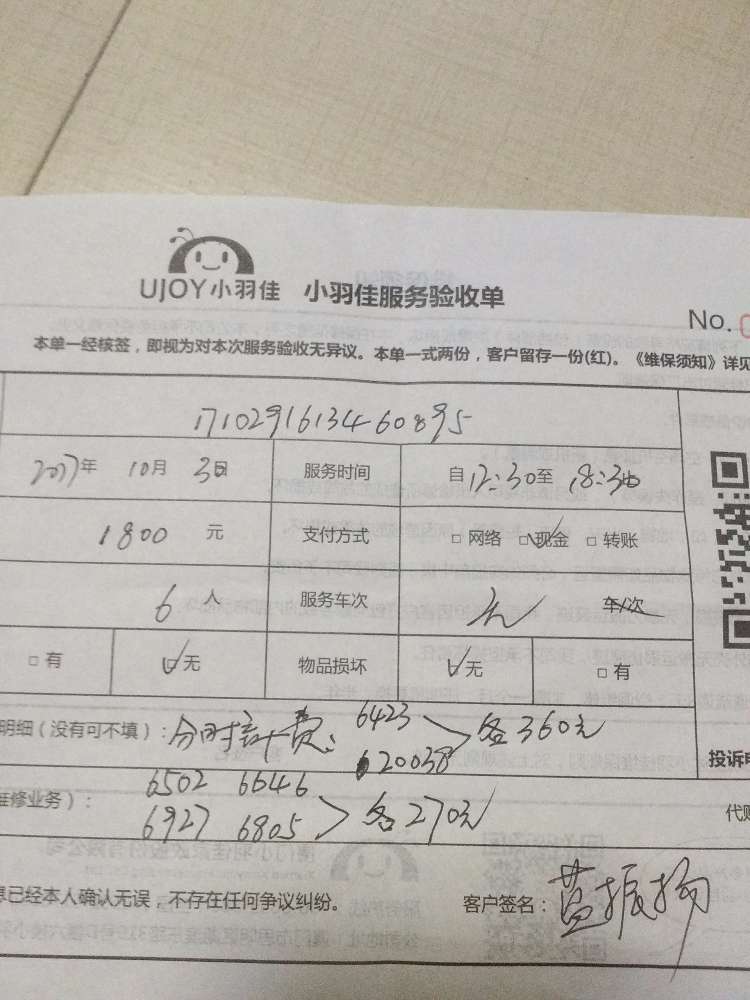 UJOY小羽佳 小羽佳服务验收单
No.
本单一经核签，即视为对本次服务验收无异议。本单一式两份，客户留存一份(红)。《维保须知》详见
17102916134460895
2017年 10月 3日 服务时间 自12:30至 18:30
1800 元 支付方式 □ 网络 □现金 □ 转账
6人 服务车次 无 车/次
□ 有 □无 物品损坏 □无 □ 有
明细（没有可不填）：分时计费：6423 20038 各360元
投诉
维修业务）：6502 6646 6927 6805 各270元
代
息已经本人确认无误，不存在任何争议纠纷。 客户签名：蓝振扬